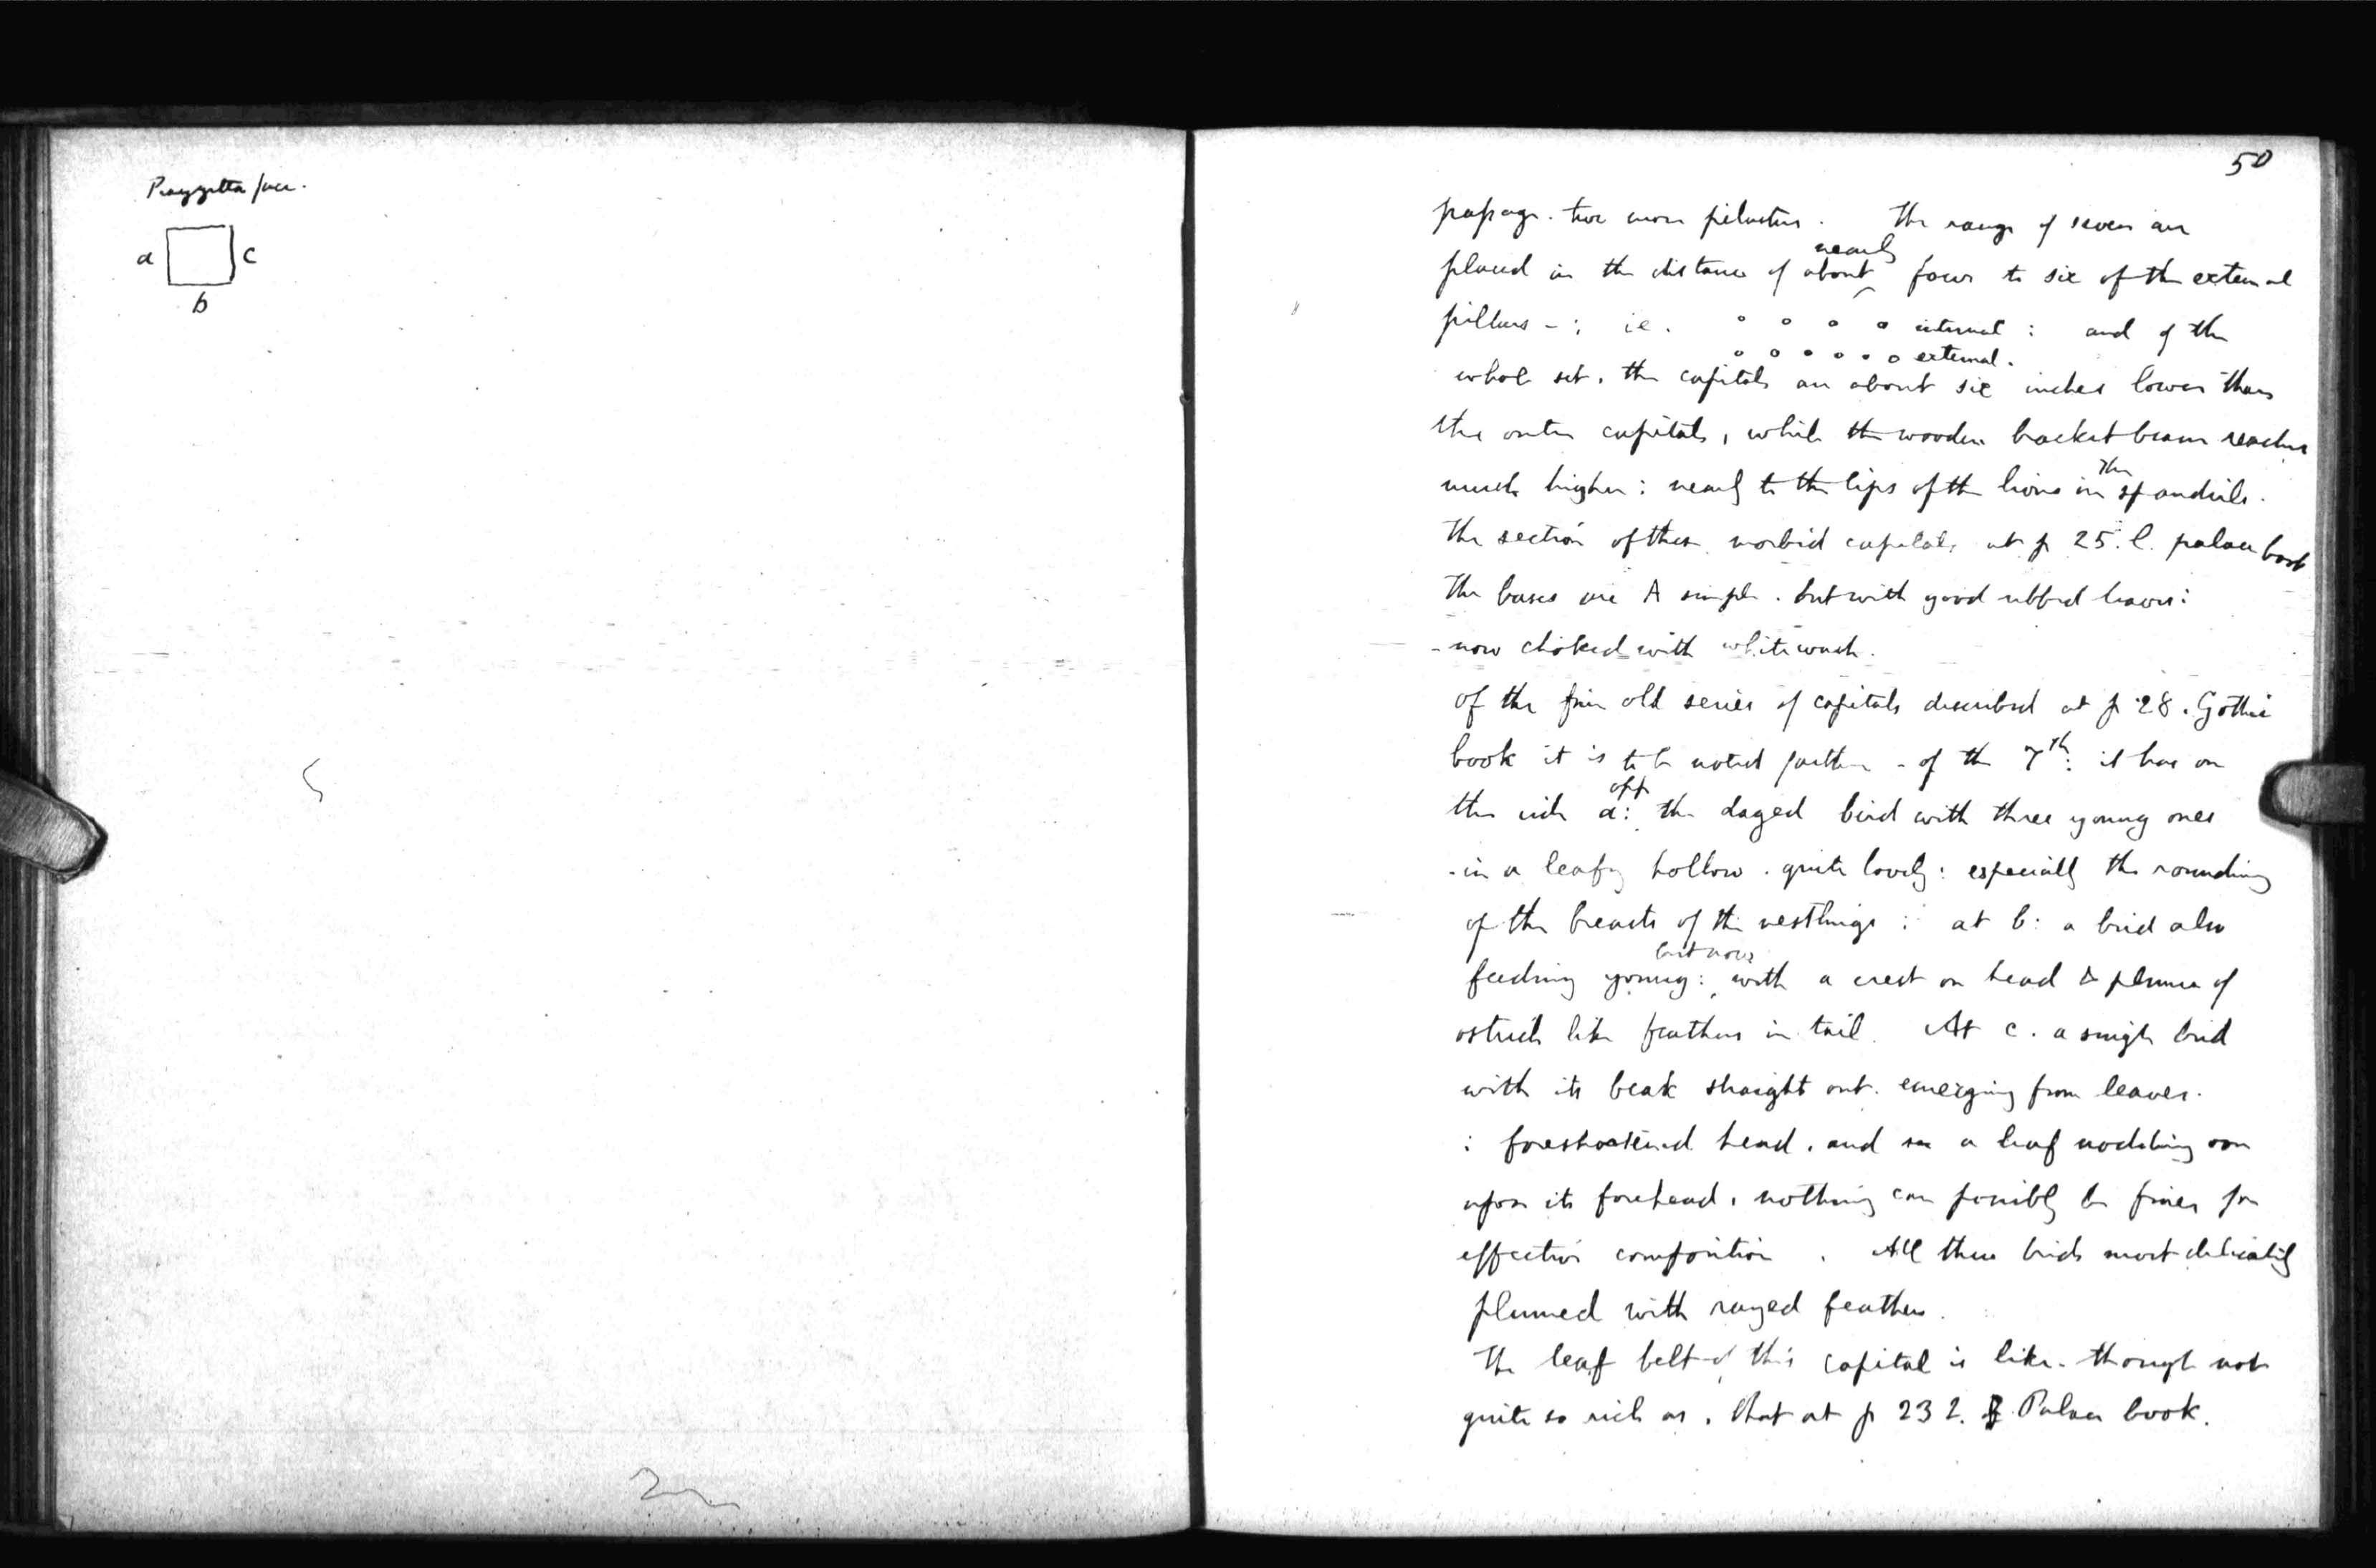 Piazzetta face.
a c
b
50
passage. two more pilasters. The range of seven are
nearly
placed in the distance of about four to six of the external
pillars - : ie. internal : and of the
external.
whole set. the capitals are about six inches lower than
the outer capitals, while the wooden bracket beam reaches
the
much higher : nearly to the lips of the lions in spandrils.
The section of these morbid capitals at p 25. l. palace book
The bases are A simple. but with good ribbed leaves:
- now choked with whitewash.
of the fine old series of capitals described at p 28. Gothic
book it is to be noted further - of the 7th: it has on
opp
the side a: the bird with three young ones
- in a leafy hollow. quite lovely: especially the rounding
of the breasts of the nestlings : at b: a bird also
feeding young: with a crest on head & plume of
ostrich like feathers in tail. At c. a single bird
with its beak straight out. emerging from leaves.
: foreshortened head. and a leaf nodding over
upon its forehead, nothing can possibly be finer for
effective composition. All these birds most delicately
plumed with rayed feathers.
The leaf belt of this capital is like. though not
quite so rich as, that at p 23 l. Palace book.